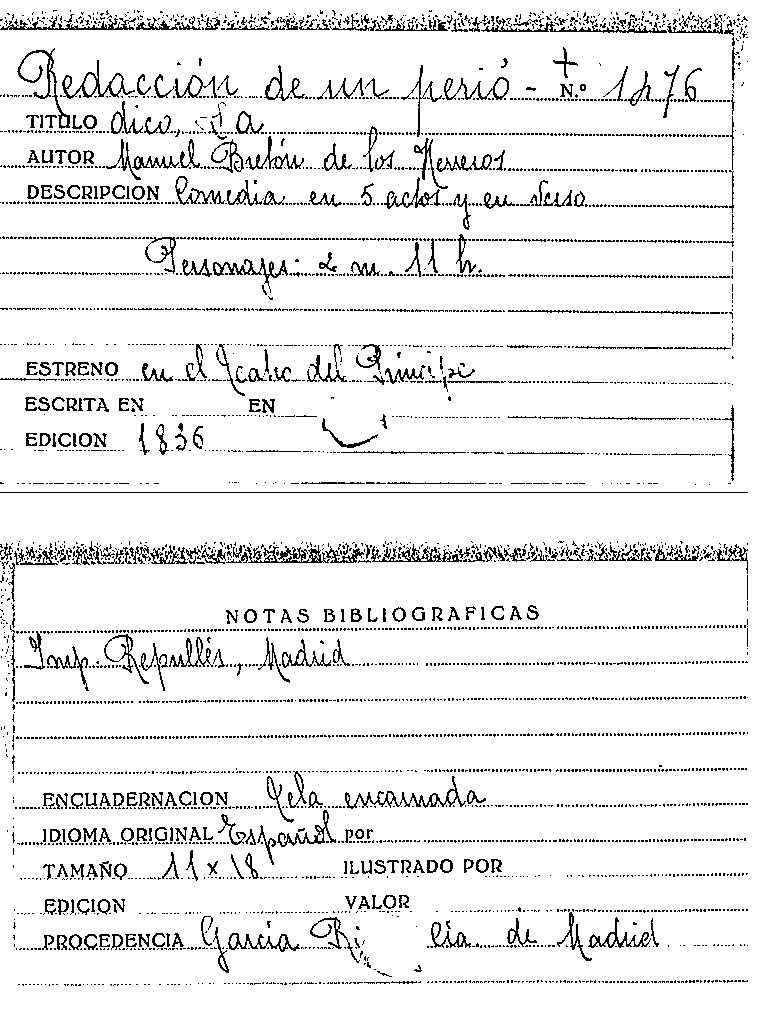 Redacción de un perió- + N.º 1476
TITULO dico, La
AUTOR Manuel Bretón de los Herreros
DESCRIPCION Comedia en 5 actos y en verso
Personajes: 2 m. 11 h.
ESTRENO en el Teatro del Príncipe
ESCRITA EN EN
EDICION 1836
NOTAS BIBLIOGRAFICAS
Imp. Repullés, Madrid
ENCUADERNACION Tela encarnada
IDIOMA ORIGINAL Español por
TAMAÑO 11 x 18 ILUSTRADO POR
EDICION VALOR
PROCEDENCIA García de Madrid